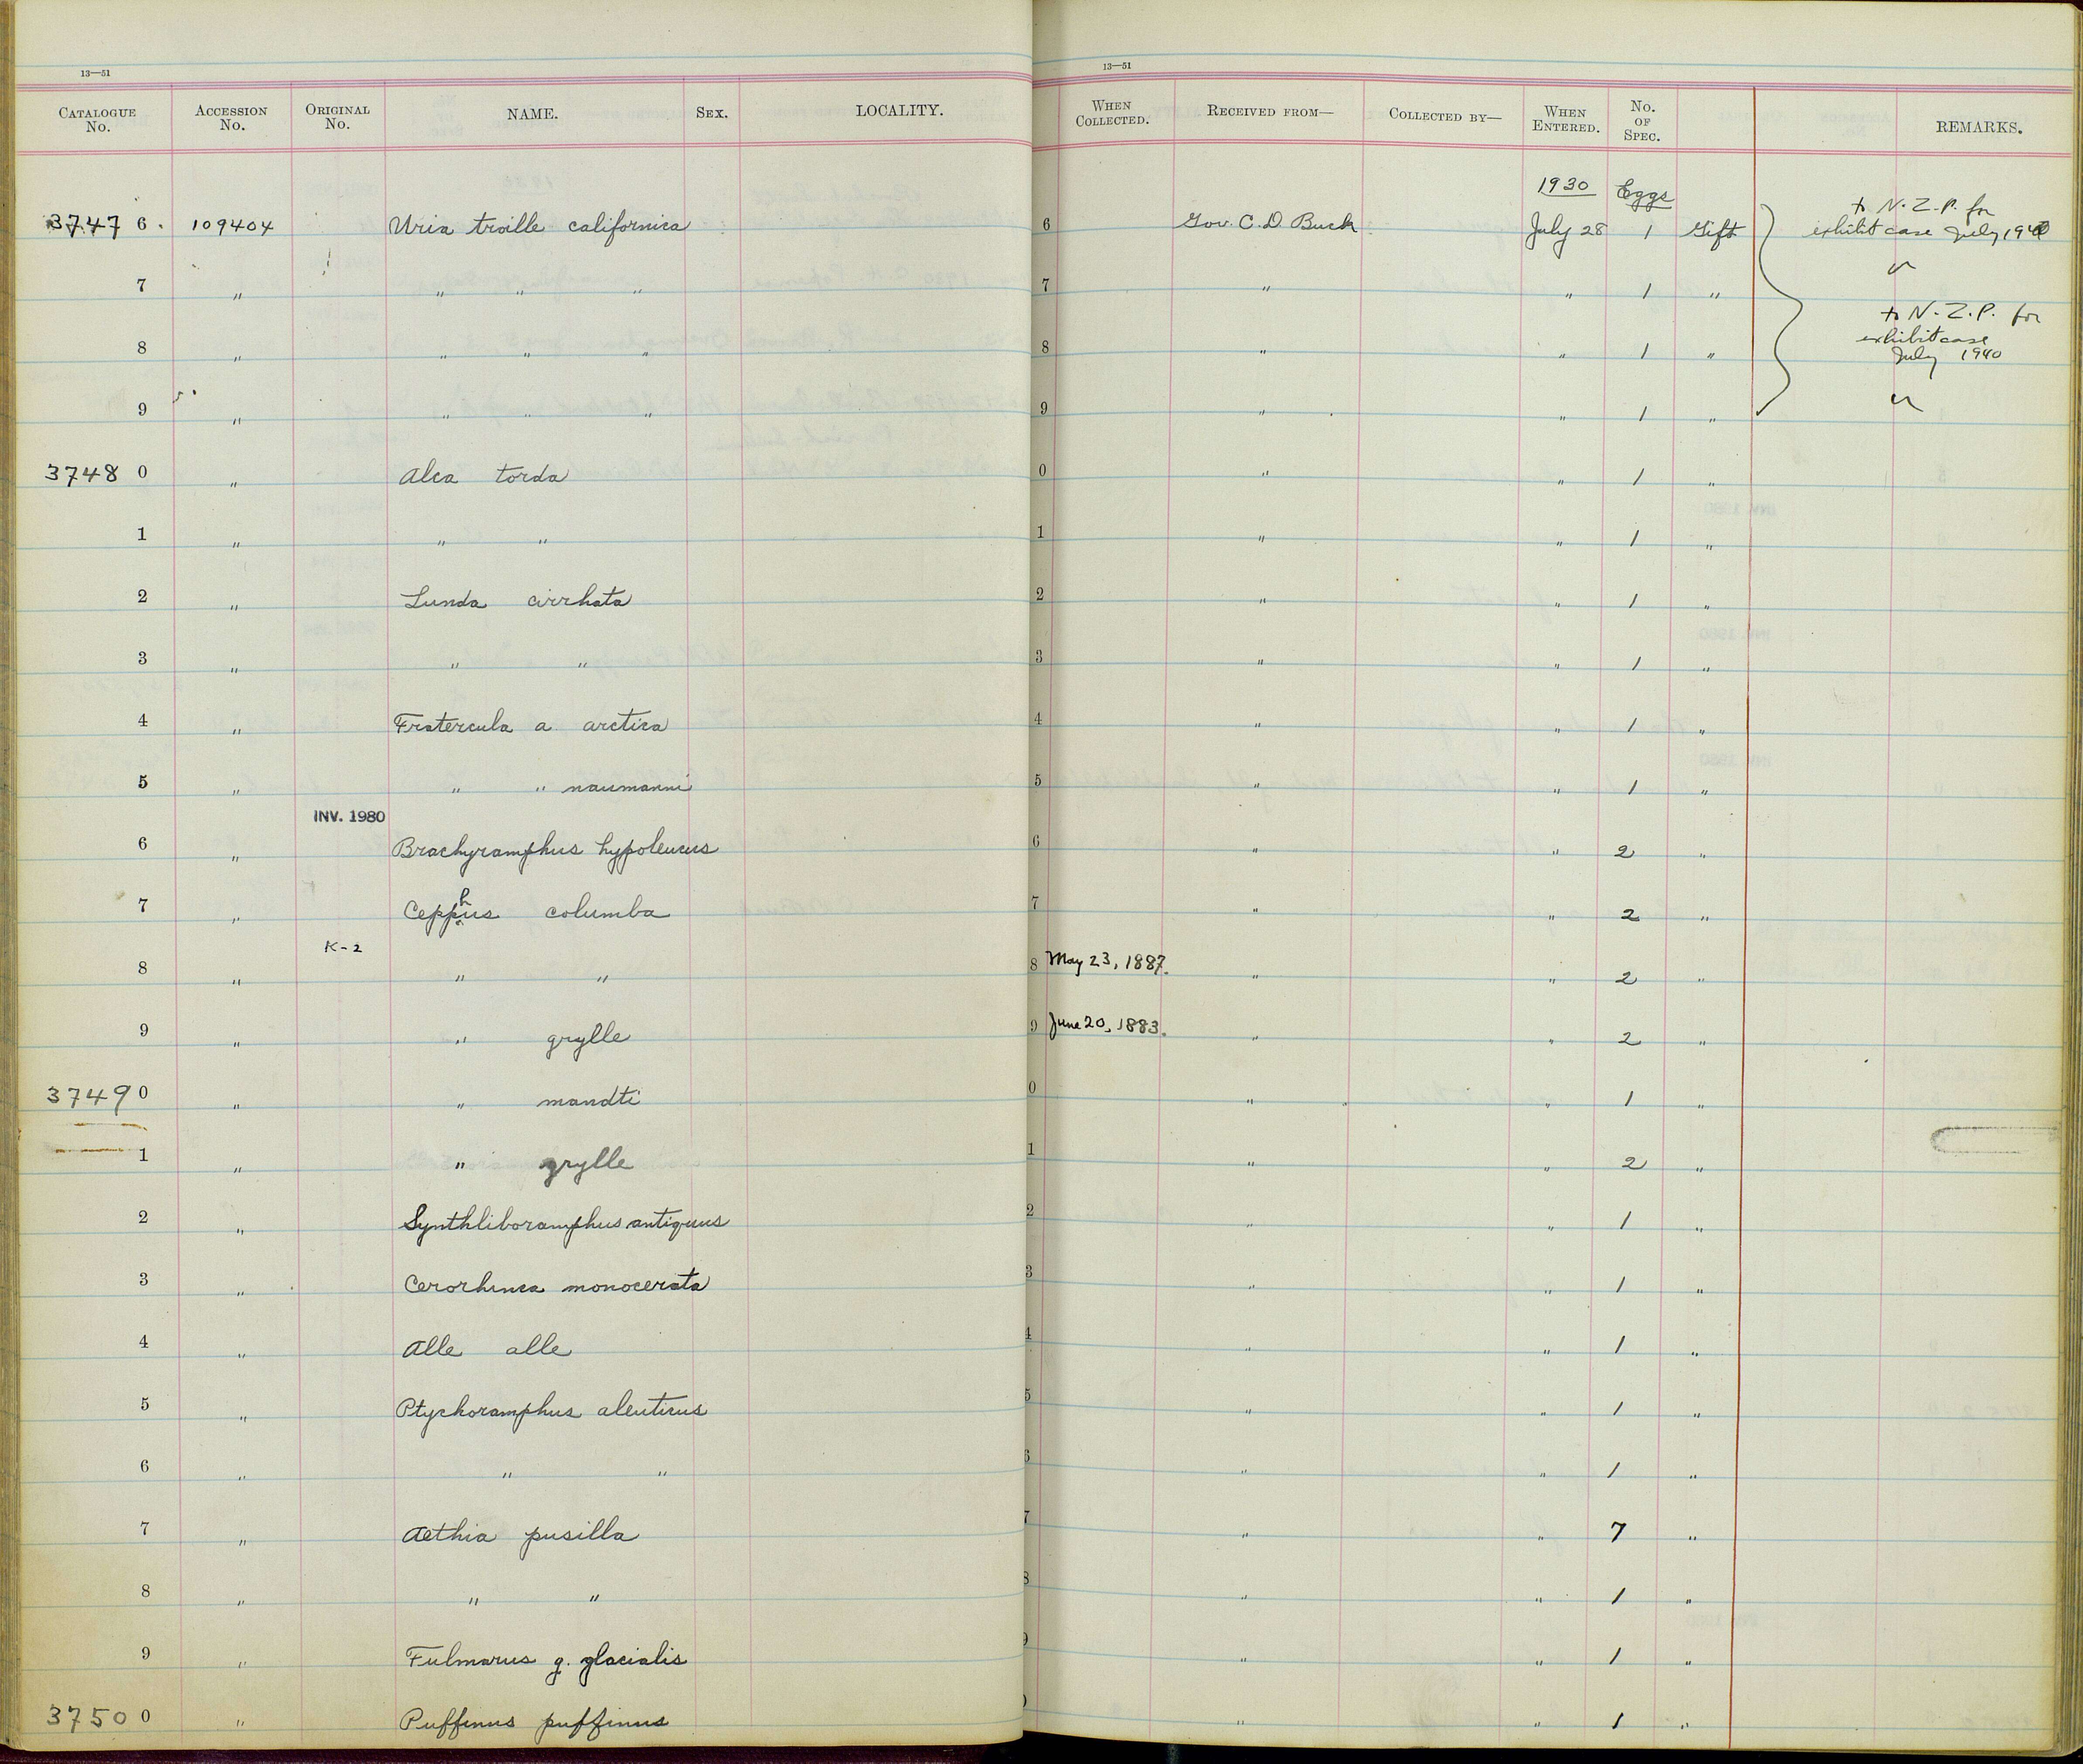 13—51
CATALOGUE No. ACCESSION No. ORIGINAL No. NAME. SEX. LOCALITY.
13—51
WHEN COLLECTED. RECEIVED FROM— COLLECTED BY— WHEN ENTERED. No. OF SPEC. REMARKS.
1930 Eggs
37476. 109404 Uria troille californica 6 Gov. C. D. Buck July 28 1 Gift to N.Z.P. for exhibit case July 1940
7 " " " " 7 " " 1 " "
8 " " " " 8 " " 1 " to N.Z.P. for exhibit case July 1940
9 " " " " 9 " " 1 " "
37480 " Alca torda 0 " " 1 "
1 " " " 1 " " 1 "
2 " Lunda cirrhata 2 " " 1 "
3 " " " 3 " " 1 "
4 " Fratercula a arctica 4 " " 1 "
5 " " " naumanni 5 " " 1 "
INV. 1980
6 " Brachyramphus hypoleucus 6 " " 2 "
7 " Cepphus columba 7 " " 2 "
K-2
8 " " " 8 May 23, 1887. " " 2 "
9 " " grylle 9 June 20, 1883. " " 2 "
37490 " " mandti 0 " " 1 "
1 " " grylle 1 " " 2 "
2 " Synthliboramphus antiquus 2 " " 1 "
3 " Cerorhinca monocerata 3 " " 1 "
4 " Alle alle 4 " " 1 "
5 " Ptychoramphus aleuticus 5 " " 1 "
6 " " " 6 " " 1 "
7 " Aethia pusilla 7 " " 7 "
8 " " " 8 " " 1 "
9 " Fulmarus g. glacialis 9 " " 1 "
37500 " Puffinus puffinus 0 " " 1 "